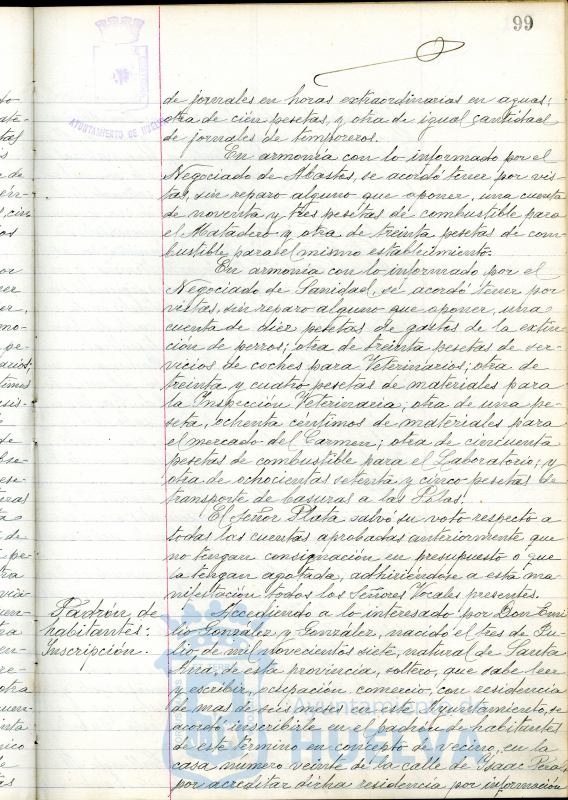 99
AYUNTAMIENTO DE HUELVA
de jornales en horas extraordinarias en aguas;
otra de cien pesetas, y otra de igual cantidad
de jornales de temporeros.
En armonía con lo informado por el
Negociado de Abastos, se acordó tener por vis-
tas, sin reparo alguno que oponer, una cuenta
de noventa y tres pesetas de combustible para
el Matadero y otra de treinta pesetas de com-
bustible para el mismo establecimiento.
En armonía con lo informado por el
Negociado de Sanidad, se acordó tener por
vistas, sin reparo alguno que oponer, una
cuenta de diez pesetas de gastos de la extin-
ción de perros; otra de treinta pesetas de ser-
vicios de coches para Veterinarios; otra de
treinta y cuatro pesetas de materiales para
la Inspección Veterinaria; otra de una pe-
seta, ochenta centimos de materiales para
el mercado del Carmen; otra de cincuenta
pesetas de combustible para el Laboratorio; y
otra de ochocientas setenta y cinco pesetas de
transporte de basuras a las
El Señor Plata salvó su voto respecto a
todas las cuentas aprobadas anteriormente que
no tengan consignación en presupuesto o que
la tengan agotada, adhiriéndose a esta ma-
nifestación todos los Señores Vocales presentes.
Padrón de
habitantes:
Inscripción.
Accediendo a lo interesado por Don Emi-
lio González y González, nacido el tres de Ju-
lio de mil novecientos siete, natural de Santa
Ana, de esta provincia, soltero, que sabe leer
y escribir, ocupación comercio, con residencia
de mas de seis meses en este Ayuntamiento, se
acordó inscribirle en el padrón de habitantes
de este término en concepto de vecino, en la
casa número veinte de la calle de Isaac Peral,
por acreditar dicha residencia por información
Ayuntamiento de
HUELVA